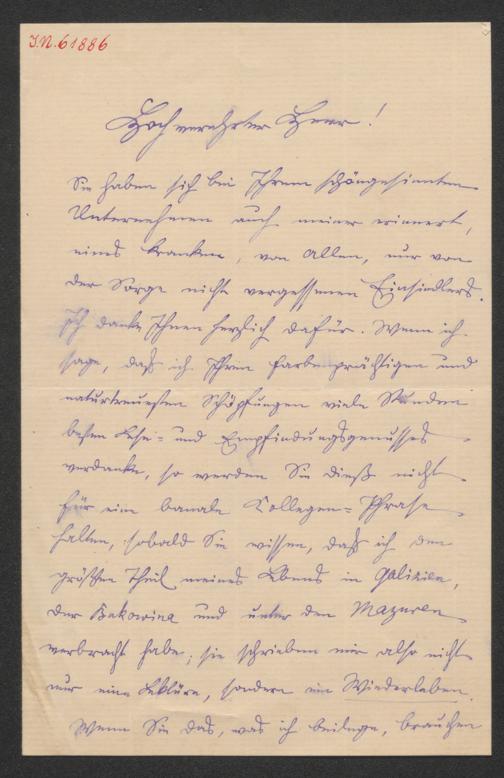 J.N. 61886
Hochverehrter Herr!
Sie haben sich bei Ihrem schöngesinnten
Unternehmen auch meiner erinnert,
eines Kranken, von Allen, nur von
der Sorge nicht vergessenen Einsiedlers.
Ich danke Ihnen herzlich dafür. Wenn ich
sage, daß ich Ihren farbenprächtigen und
naturtreuesten Schöpfungen viele Stunden
besten Lese- und Empfindungsgenusses
verdanke, so werden Sie dieß nicht
für eine banale Collegen-Phrase
halten, sobald Sie wissen, daß ich den
größten Theil meines Lebens in Galizien,
der Bukowina und unter den Mazuren
verbracht habe; sie schrieben mir also nicht
nur eine Lektüre, sondern ein Wiederleben.
Wenn Sie das, was ich beilege, brauchen